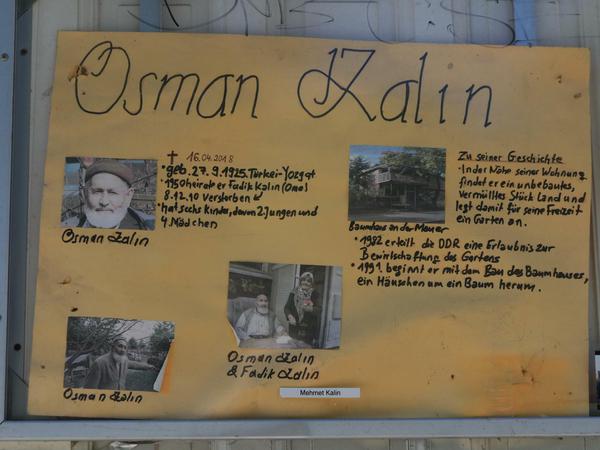 Osman Kalin
† 16.04.2018
• geb. 27.9.1925. Türkei-Yozgat
• 1950 heiratet er Fadik Kalin (Oma)
8.12.10 Verstorben
• hat sechs Kinder, davon 2 Jungen und
4 Mädchen
Osman Kalin
Osman Kalin
& Fadik Kalin
Osman Kalin
Mehmet Kalin
Baumhaus an der Mauer
Zu seiner Geschichte
• In der Nähe seiner Wohnung
findet er ein unbebautes,
vermülltes Stück Land und
legt damit für seine Freizeit
ein Garten an.
• 1982 erteilt die DDR eine Erlaubnis zur
Bewirtschaftung des Gartens
• 1991. beginnt er mit dem Bau des Baumhauses,
ein Häuschen um ein Baum herum.